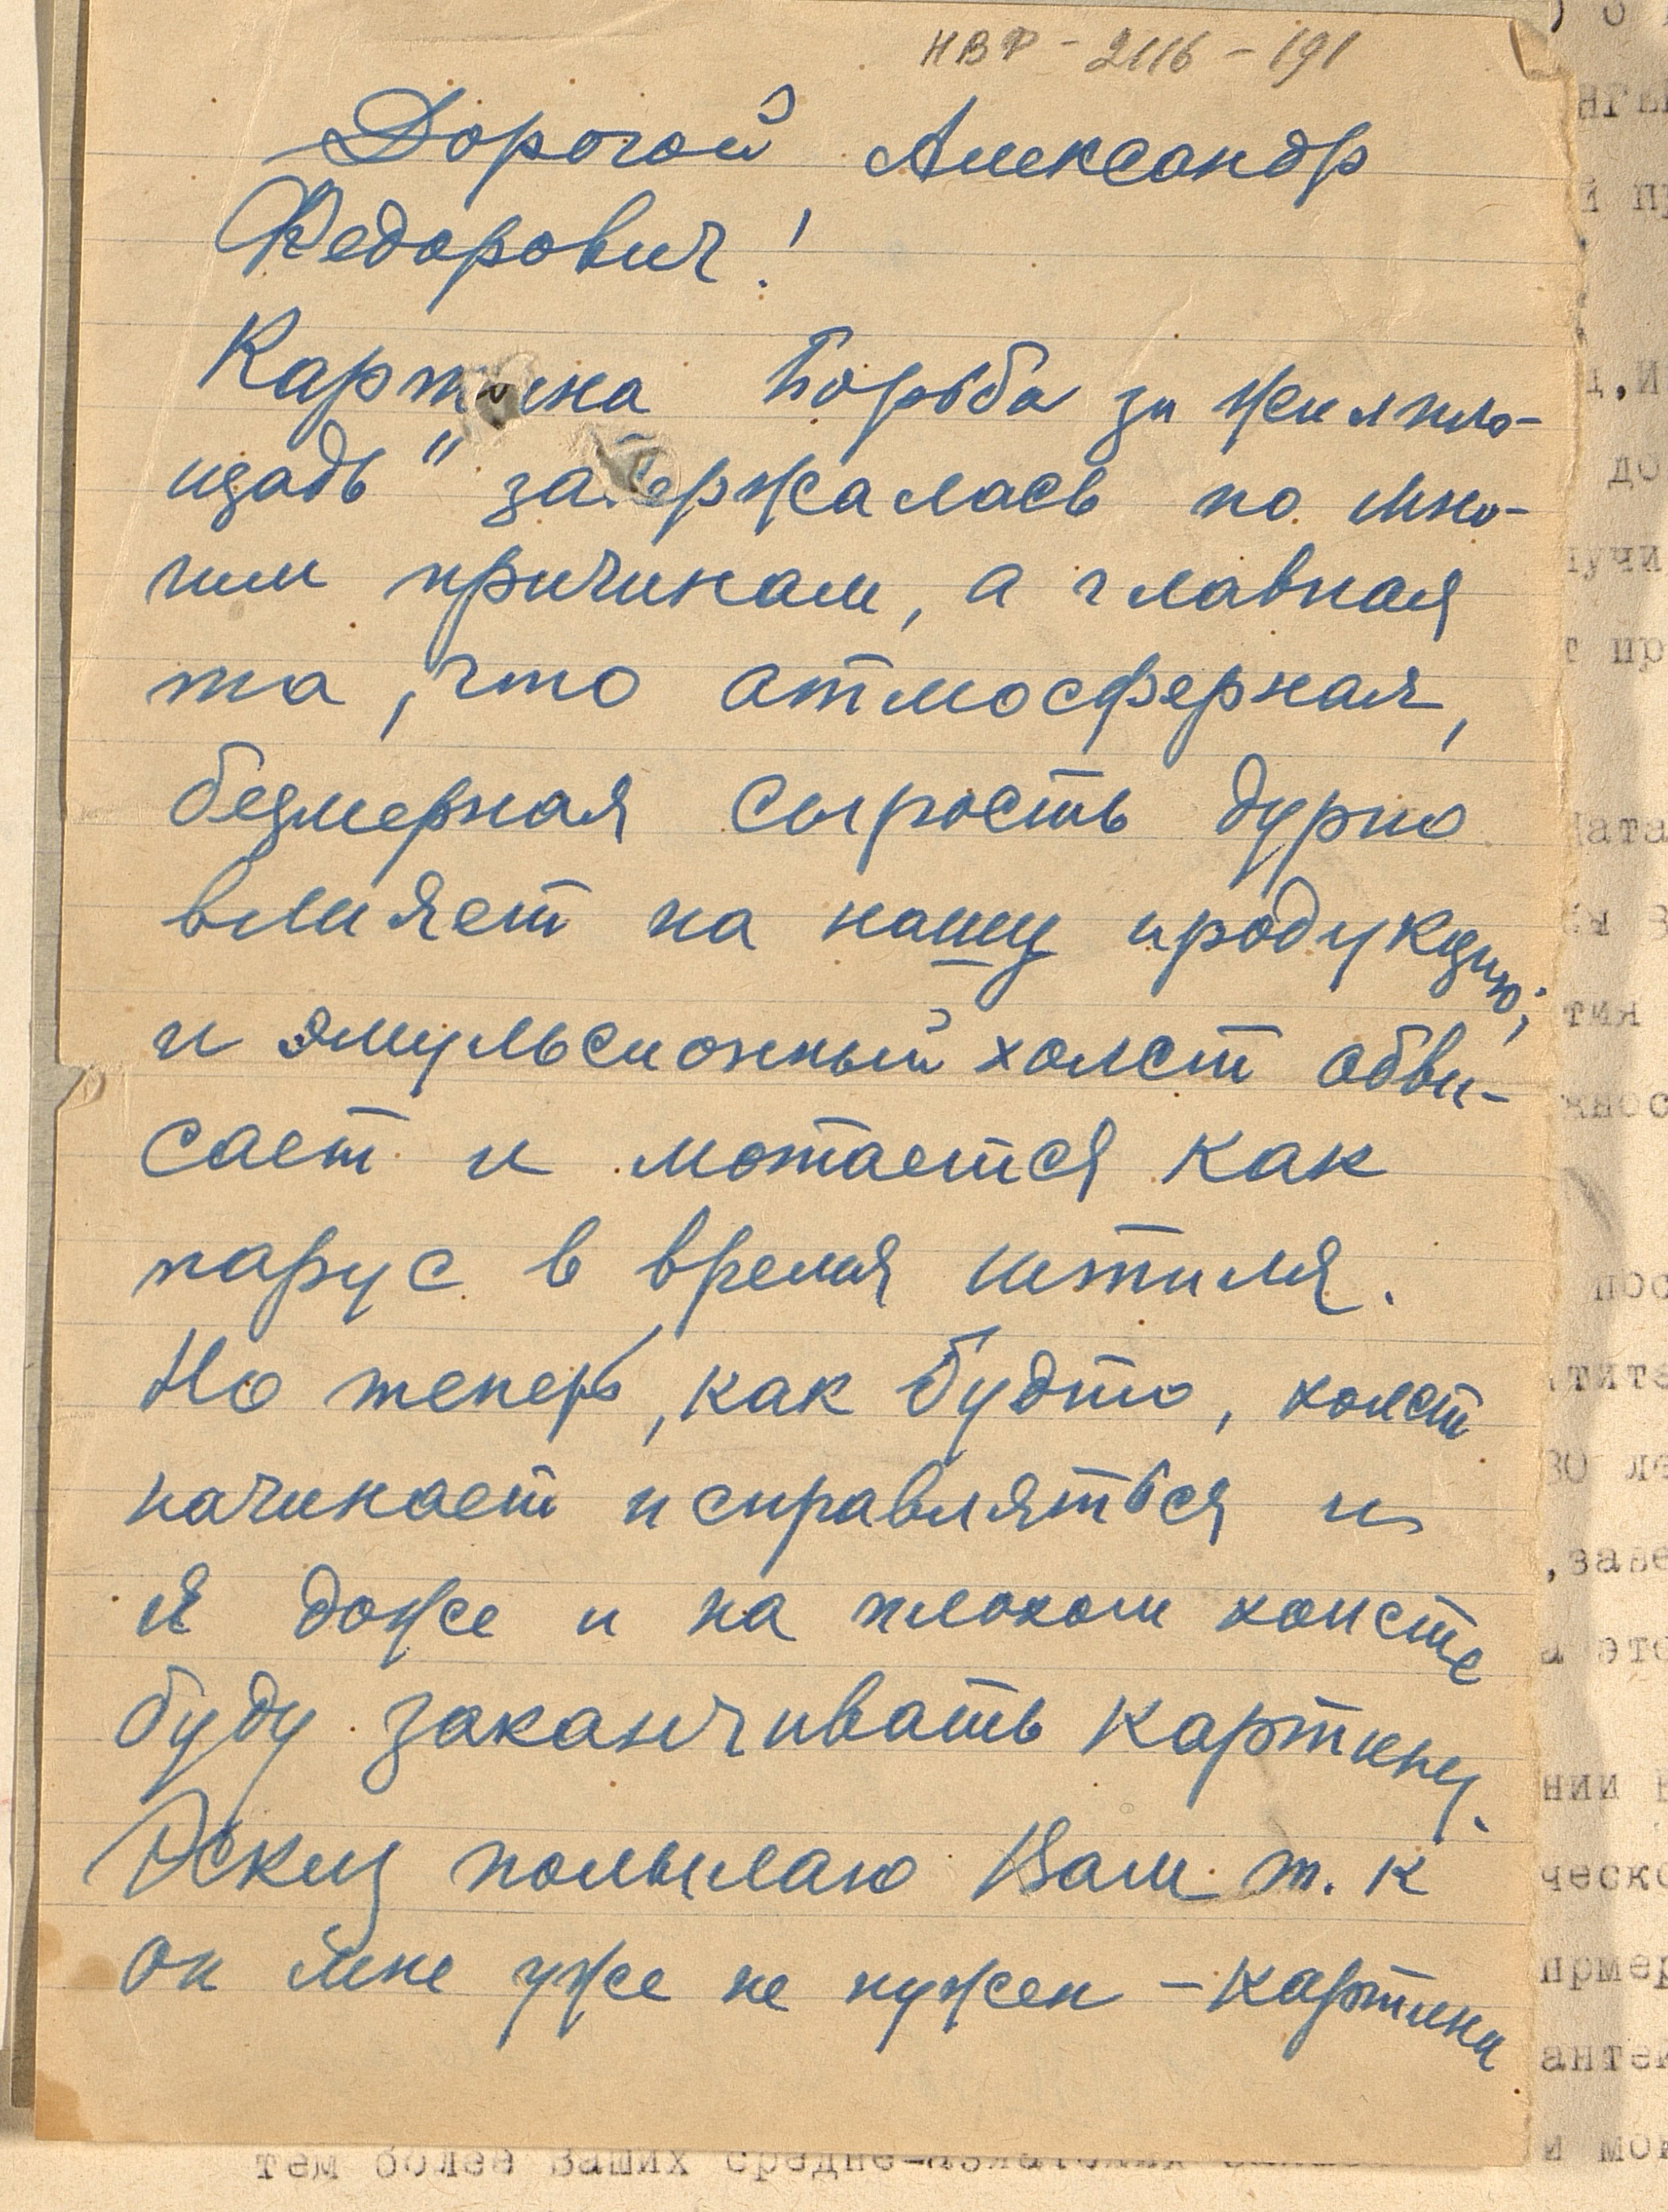 НВФ - 2116 - 191
Дорогой Александр
Федорович!
Картина Борьба за жилпло-
щадь" задержалась по мно-
гим причинам, а главная
та, что атмосферная,
безмерная сырость дурно
влияет на нашу продукцию;
и эмульсионный холст обви-
сает и мотается как
парус в время штиля.
Но теперь, как будто, холст
начинает исправляться и
я даже и на плохом холсте
буду заканчивать картину.
Эскиз посылаю Вам т. к
он мне уже не нужен - картина
тем более Ваших средне-азиатских